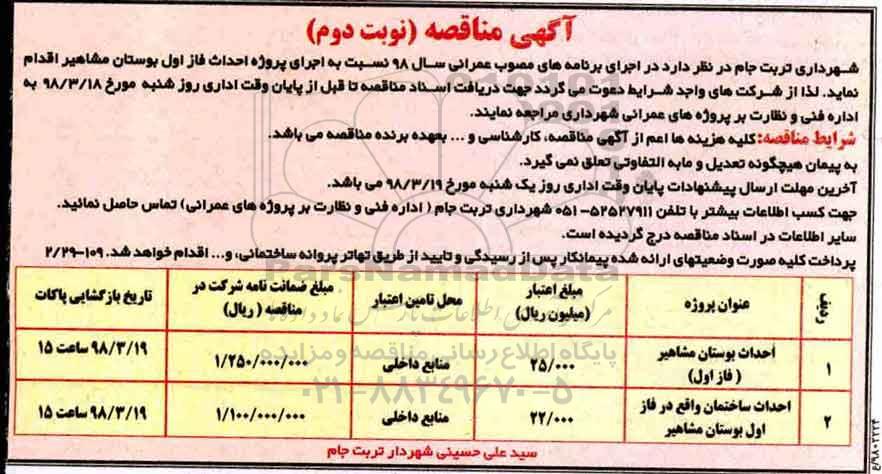 آگهی مناقصه (نوبت دوم)
شهرداری تربت جام در نظر دارد در اجرای برنامه های مصوب عمرانی سال ۹۸ نسبت به اجرای پروژه احداث فاز اول بوستان مشاهیر اقدام
نماید. لذا از شرکت های واجد شرایط دعوت می گردد جهت دریافت اسناد مناقصه تا قبل از پایان وقت اداری روز شنبه مورخ ۹۸/۳/۱۸ به
اداره فنی و نظارت بر پروژه های عمرانی شهرداری مراجعه نمایند.
شرایط مناقصه: کلیه هزینه ها اعم از آگهی مناقصه، کارشناسی و ... بعهده برنده مناقصه می باشد.
به پیمان هیچگونه تعدیل و مابه التفاوتی تعلق نمی گیرد.
آخرین مهلت ارسال پیشنهادات پایان وقت اداری روز یک شنبه مورخ ۹۸/۳/۱۹ می باشد.
جهت کسب اطلاعات بیشتر با تلفن ۵۲۵۲۷۹۱۱-۰۵۱ شهرداری تربت جام ( اداره فنی و نظارت بر پروژه های عمرانی) تماس حاصل نمائید.
سایر اطلاعات در اسناد مناقصه درج گردیده است.
پرداخت کلیه صورت وضعیتهای ارائه شده پیمانکار پس از رسیدگی و تایید از طریق تهاتر پروانه ساختمانی، و... اقدام خواهد شد. ۱۰۹-۲/۲۹
ردیف عنوان پروژه مبلغ اعتبار (میلیون ریال) محل تامین اعتبار مبلغ ضمانت نامه شرکت در مناقصه ( ریال) تاریخ بازگشایی پاکات
۱ احداث بوستان مشاهیر ( فاز اول) ۲۵/۰۰۰ منابع داخلی ۱/۲۵۰/۰۰۰/۰۰۰ ۹۸/۳/۱۹ ساعت ۱۵
۲ احداث ساختمان واقع در فاز اول بوستان مشاهیر ۲۲/۰۰۰ منابع داخلی ۱/۱۰۰/۰۰۰/۰۰۰ ۹۸/۳/۱۹ ساعت ۱۵
سید علی حسینی شهردار تربت جام
ParsNamadData
پایگاه اطلاع رسانی مناقصه و مزایده
۰۲۱-۸۸۳۴۹۶۷۰-۵